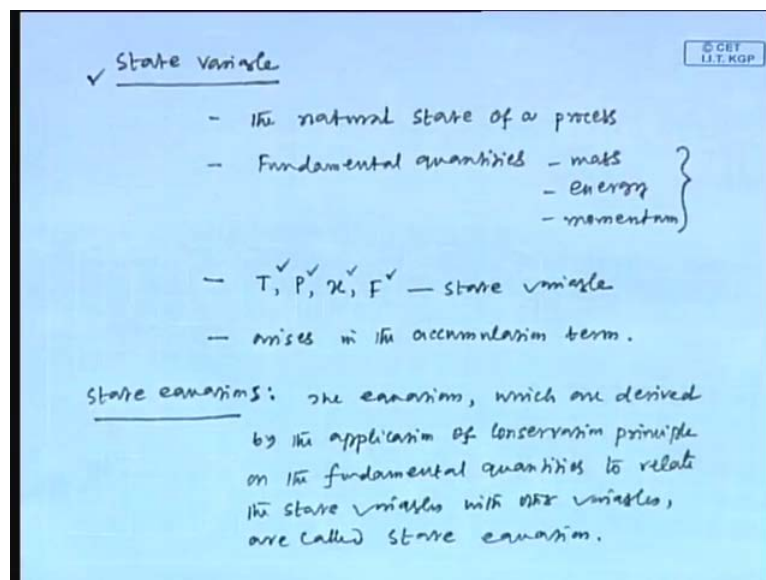 ✓ State variable
© CET
I.I.T. KGP
- The natural state of a process
- Fundamental quantities - mass
- energy
- momentum
- T, P, x, F - state variable
- arises in the accumulation term.
State equations: The equations, which are derived
by the application of conservation principle
on the fundamental quantities to relate
the state variables with other variables,
are called state equation.